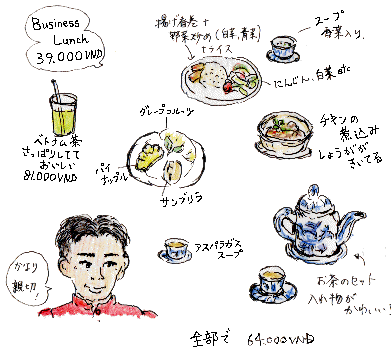 Business
Lunch
39.000VND
揚げ春巻+
野菜炒め(白菜,青菜)
+ライス
スープ
香菜入り。
にんじん、白菜 etc
ベトナム茶
さっぱりしてて
おいしい
8.000VND
グレープフルーツ
パイ
ナップル
サンブリラ
チキンの
煮込み
しょうがが
きいてる
アスパラガス
スープ
かなり
親切!
お茶のセット
入れ物が
かわいい!
全部で 64.000VND